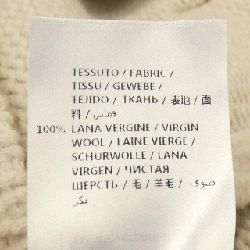 TESSUTO / FABRIC /
TISSU / GEWEBE /
TEJIDO / ТКАНЬ / 表地 / 面
料 / قماش
100% LANA VERGINE / VIRGIN
WOOL / LAINE VIERGE /
SCHURWOLLE / LANA
VIRGEN / ЧИСТАЯ
ШЕРСТЬ / 毛 / 羊毛 / صوف
بكر